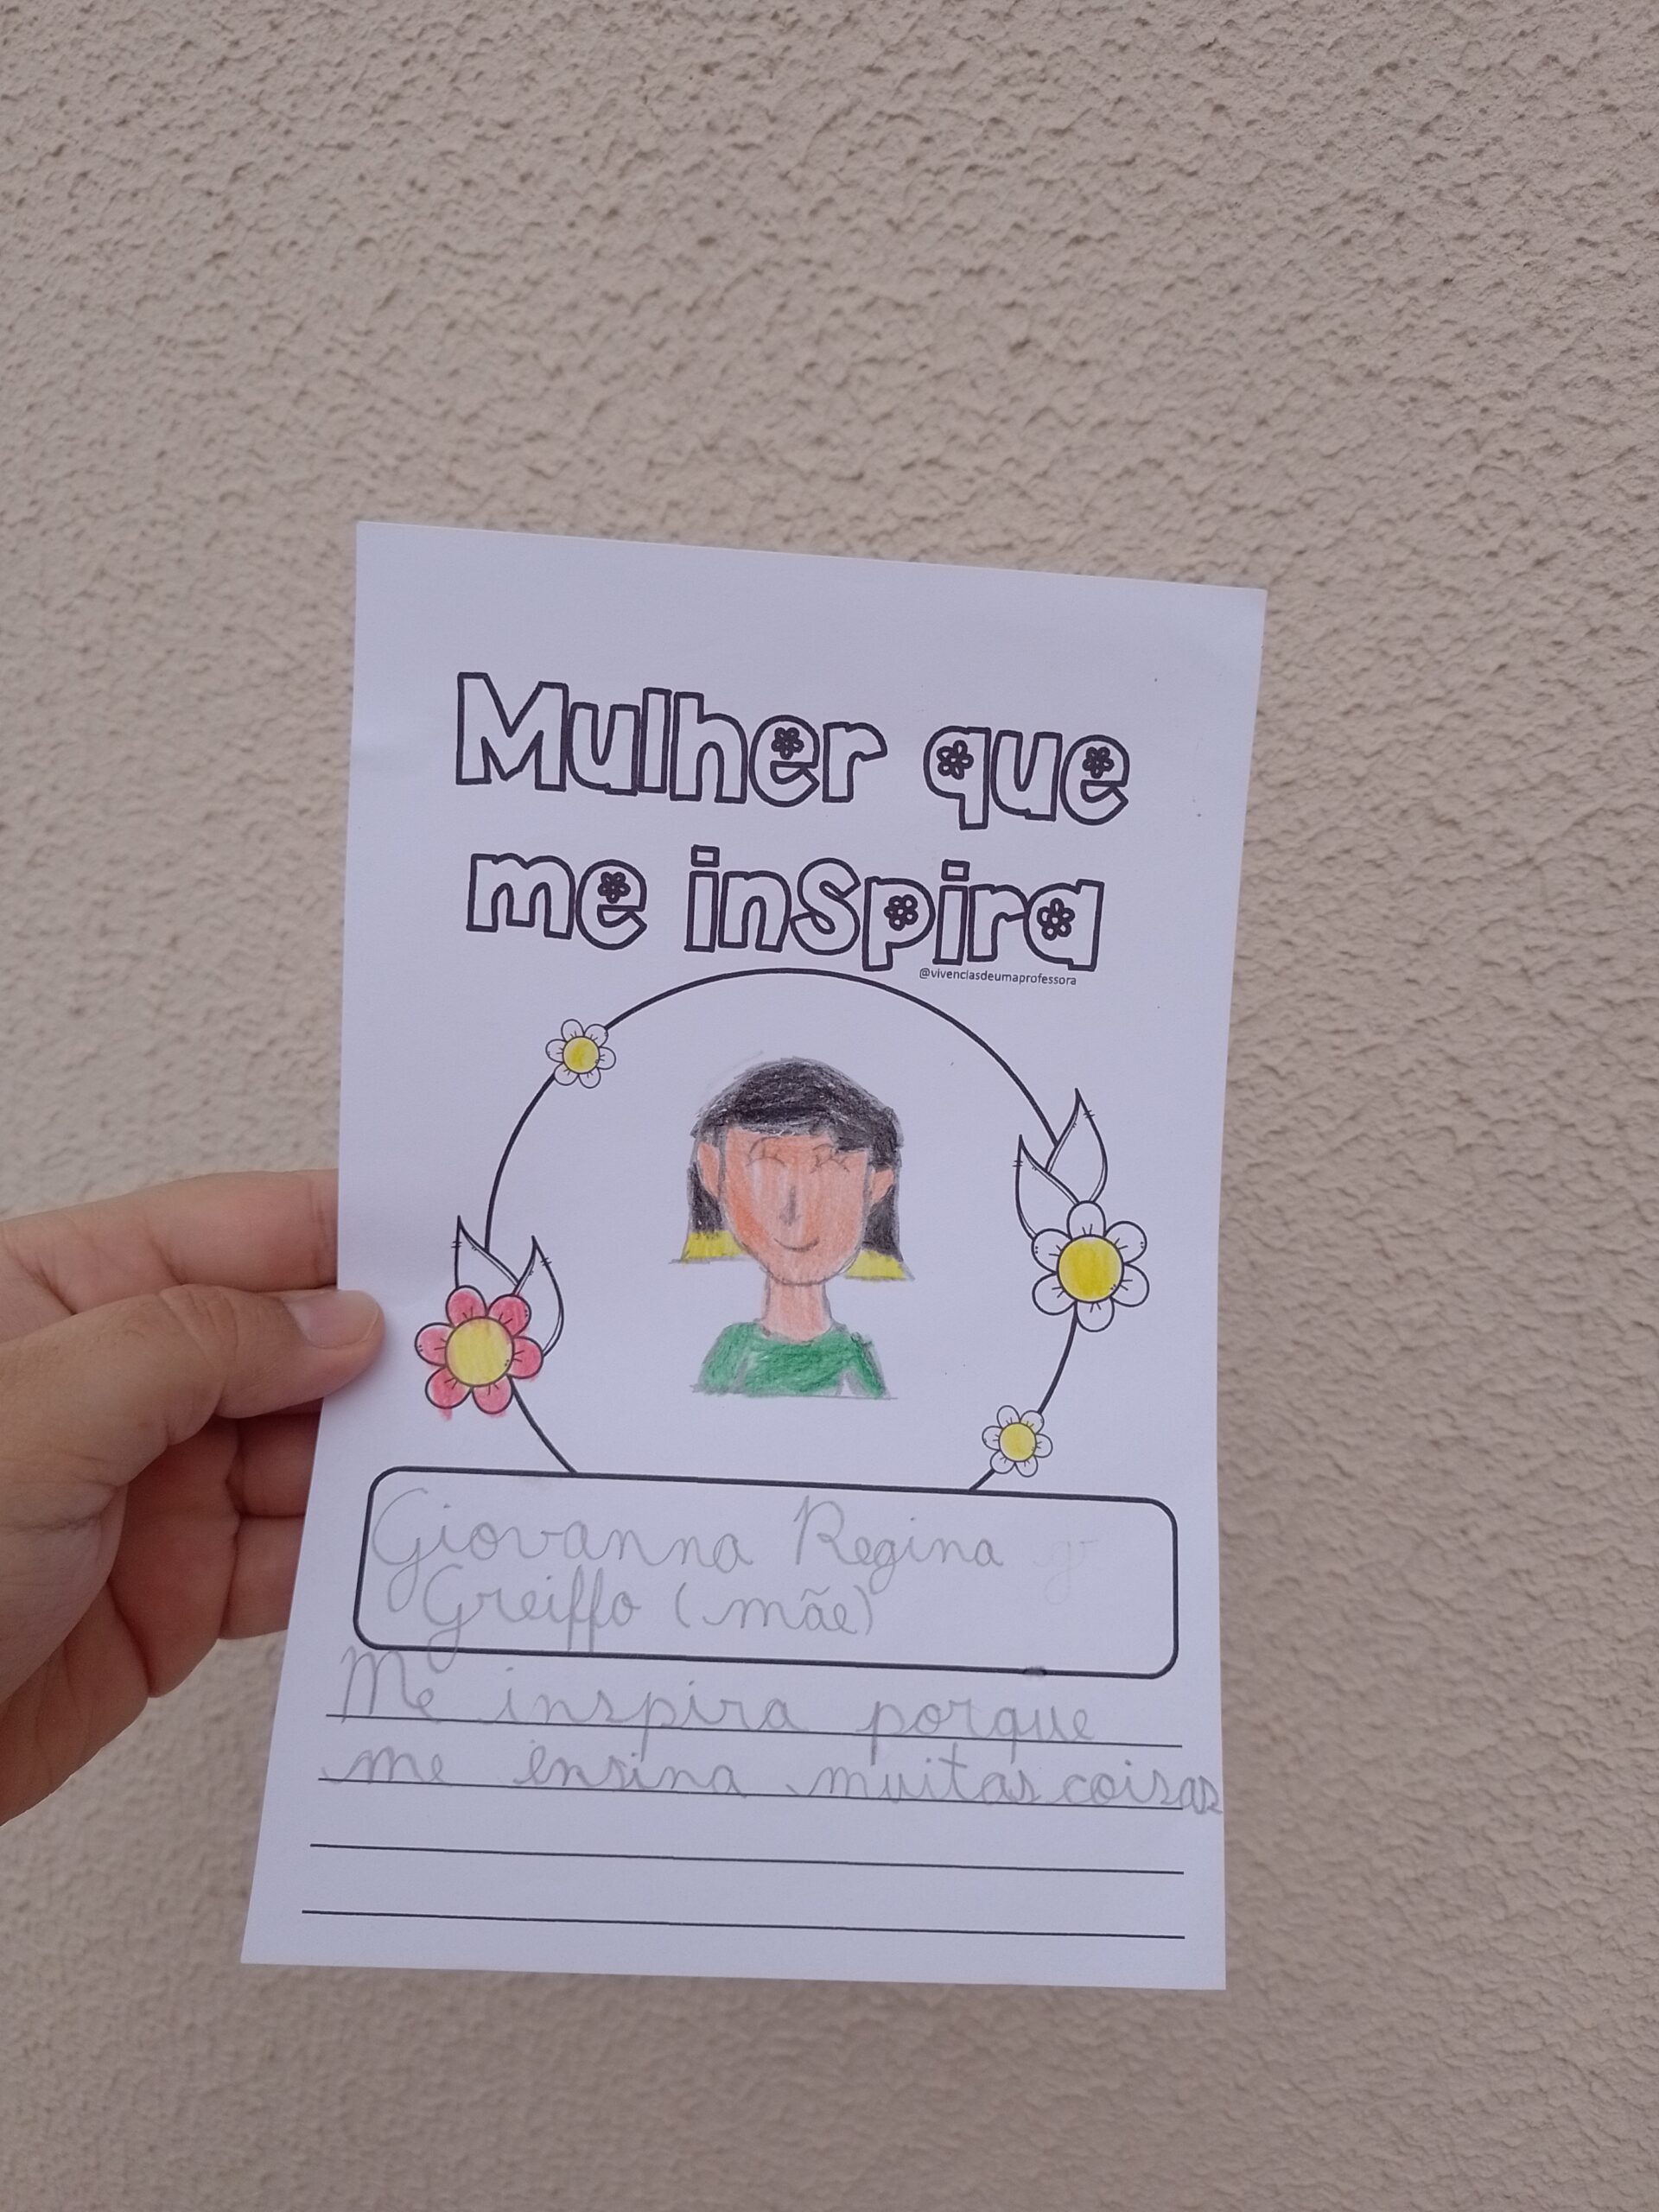 Mulher que
me inspira
@vivenciasdeumaprofessora
Giovanna Regina
Greiffo (mãe)
Me inspira porque
me ensina muitas coisas